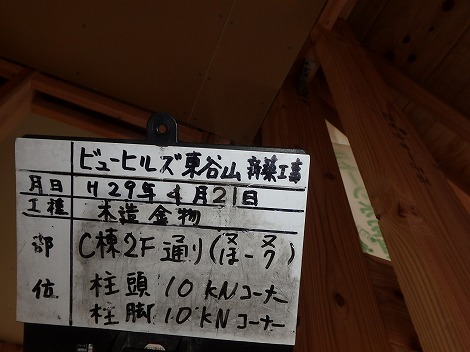 ビューヒルズ東谷山 新築工事
月日 H29年4月21日
工種 木造金物
部位 C棟2F通り(又ほ-又ク)
柱頭 10KNコーナー
柱脚 10KNコーナー